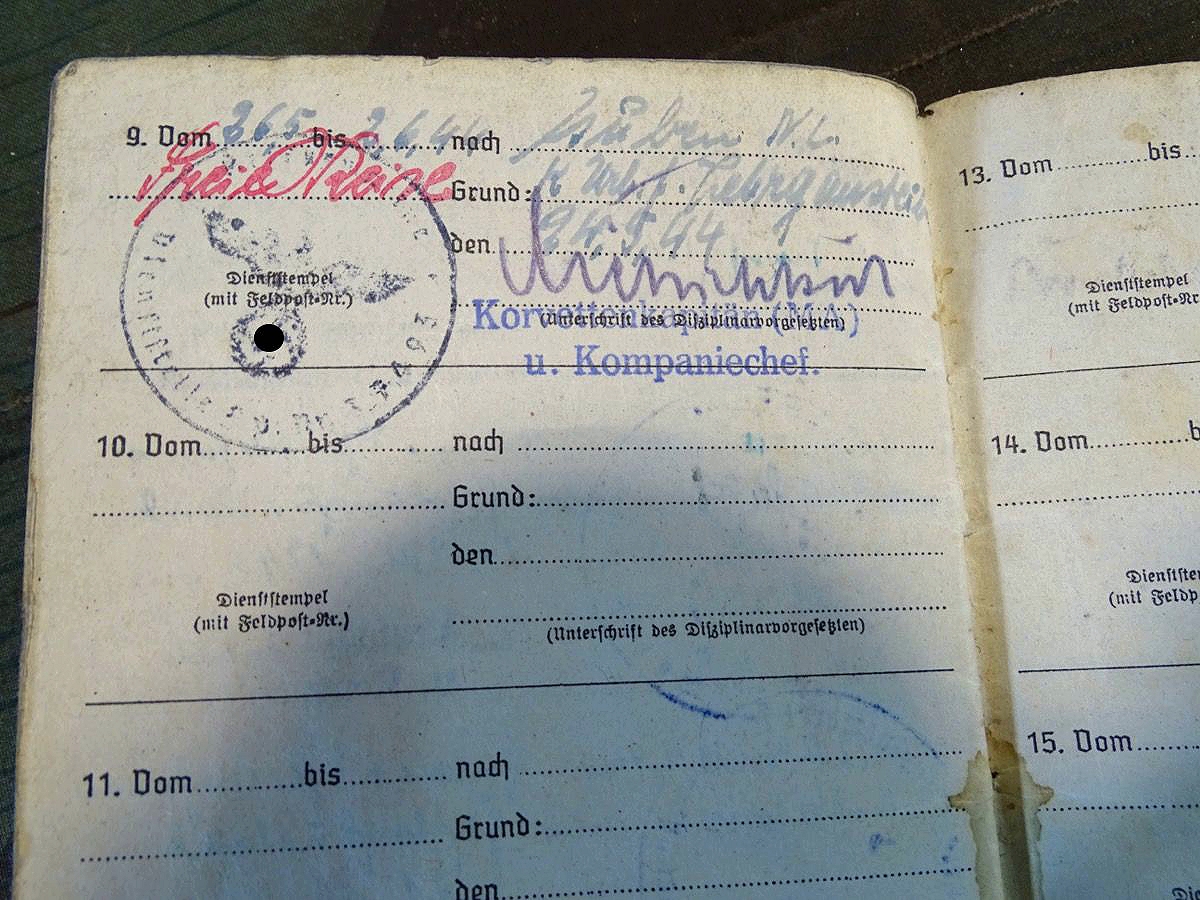 9. Vom 26.5. bis 2.6.44 nach Guben N.L.
Freie Reise Grund: K. Url.
den 24.5.44
Dienststempel
(mit Feldpost-Nr.)
Dienststelle F.P. Nr.
(Unterschrift des Disziplinarvorgesetzten)
Korvettenkapitän (MA)
u. Kompaniechef.
10. Vom bis nach
Grund:
den
Dienststempel
(mit Feldpost-Nr.)
(Unterschrift des Disziplinarvorgesetzten)
11. Vom bis nach
Grund:
den
13. Vom bis
Dienststempel
(mit Feldpost-Nr
14. Vom b
Dienstste
(mit Feldp
15. Vom
Di